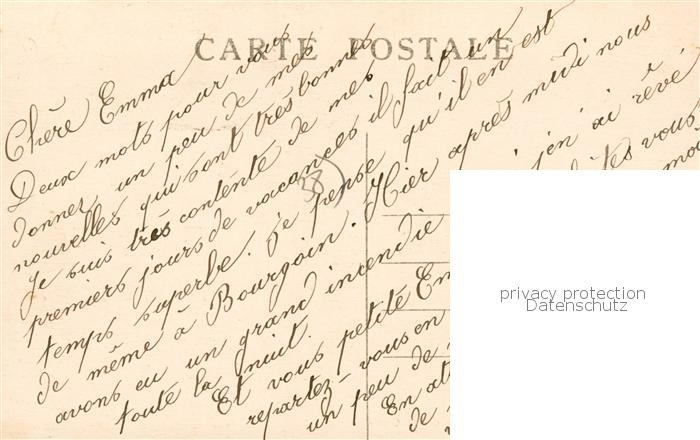 CARTE POSTALE
Chère Emma
Deux mots pour vous
donner un peu de mes
nouvelles qui sont très bonnes
Je suis très contente de mes
premiers jours de vacances il fait un
temps superbe. Je pense qu'il en est
de même à Bourgoin. Hier après midi nous
avons eu un grand incendie j'en ai rêvé
toute la nuit.
Et vous petite Em
repartez-vous en
un peu de
En at
de
privacy protection
Datenschutz